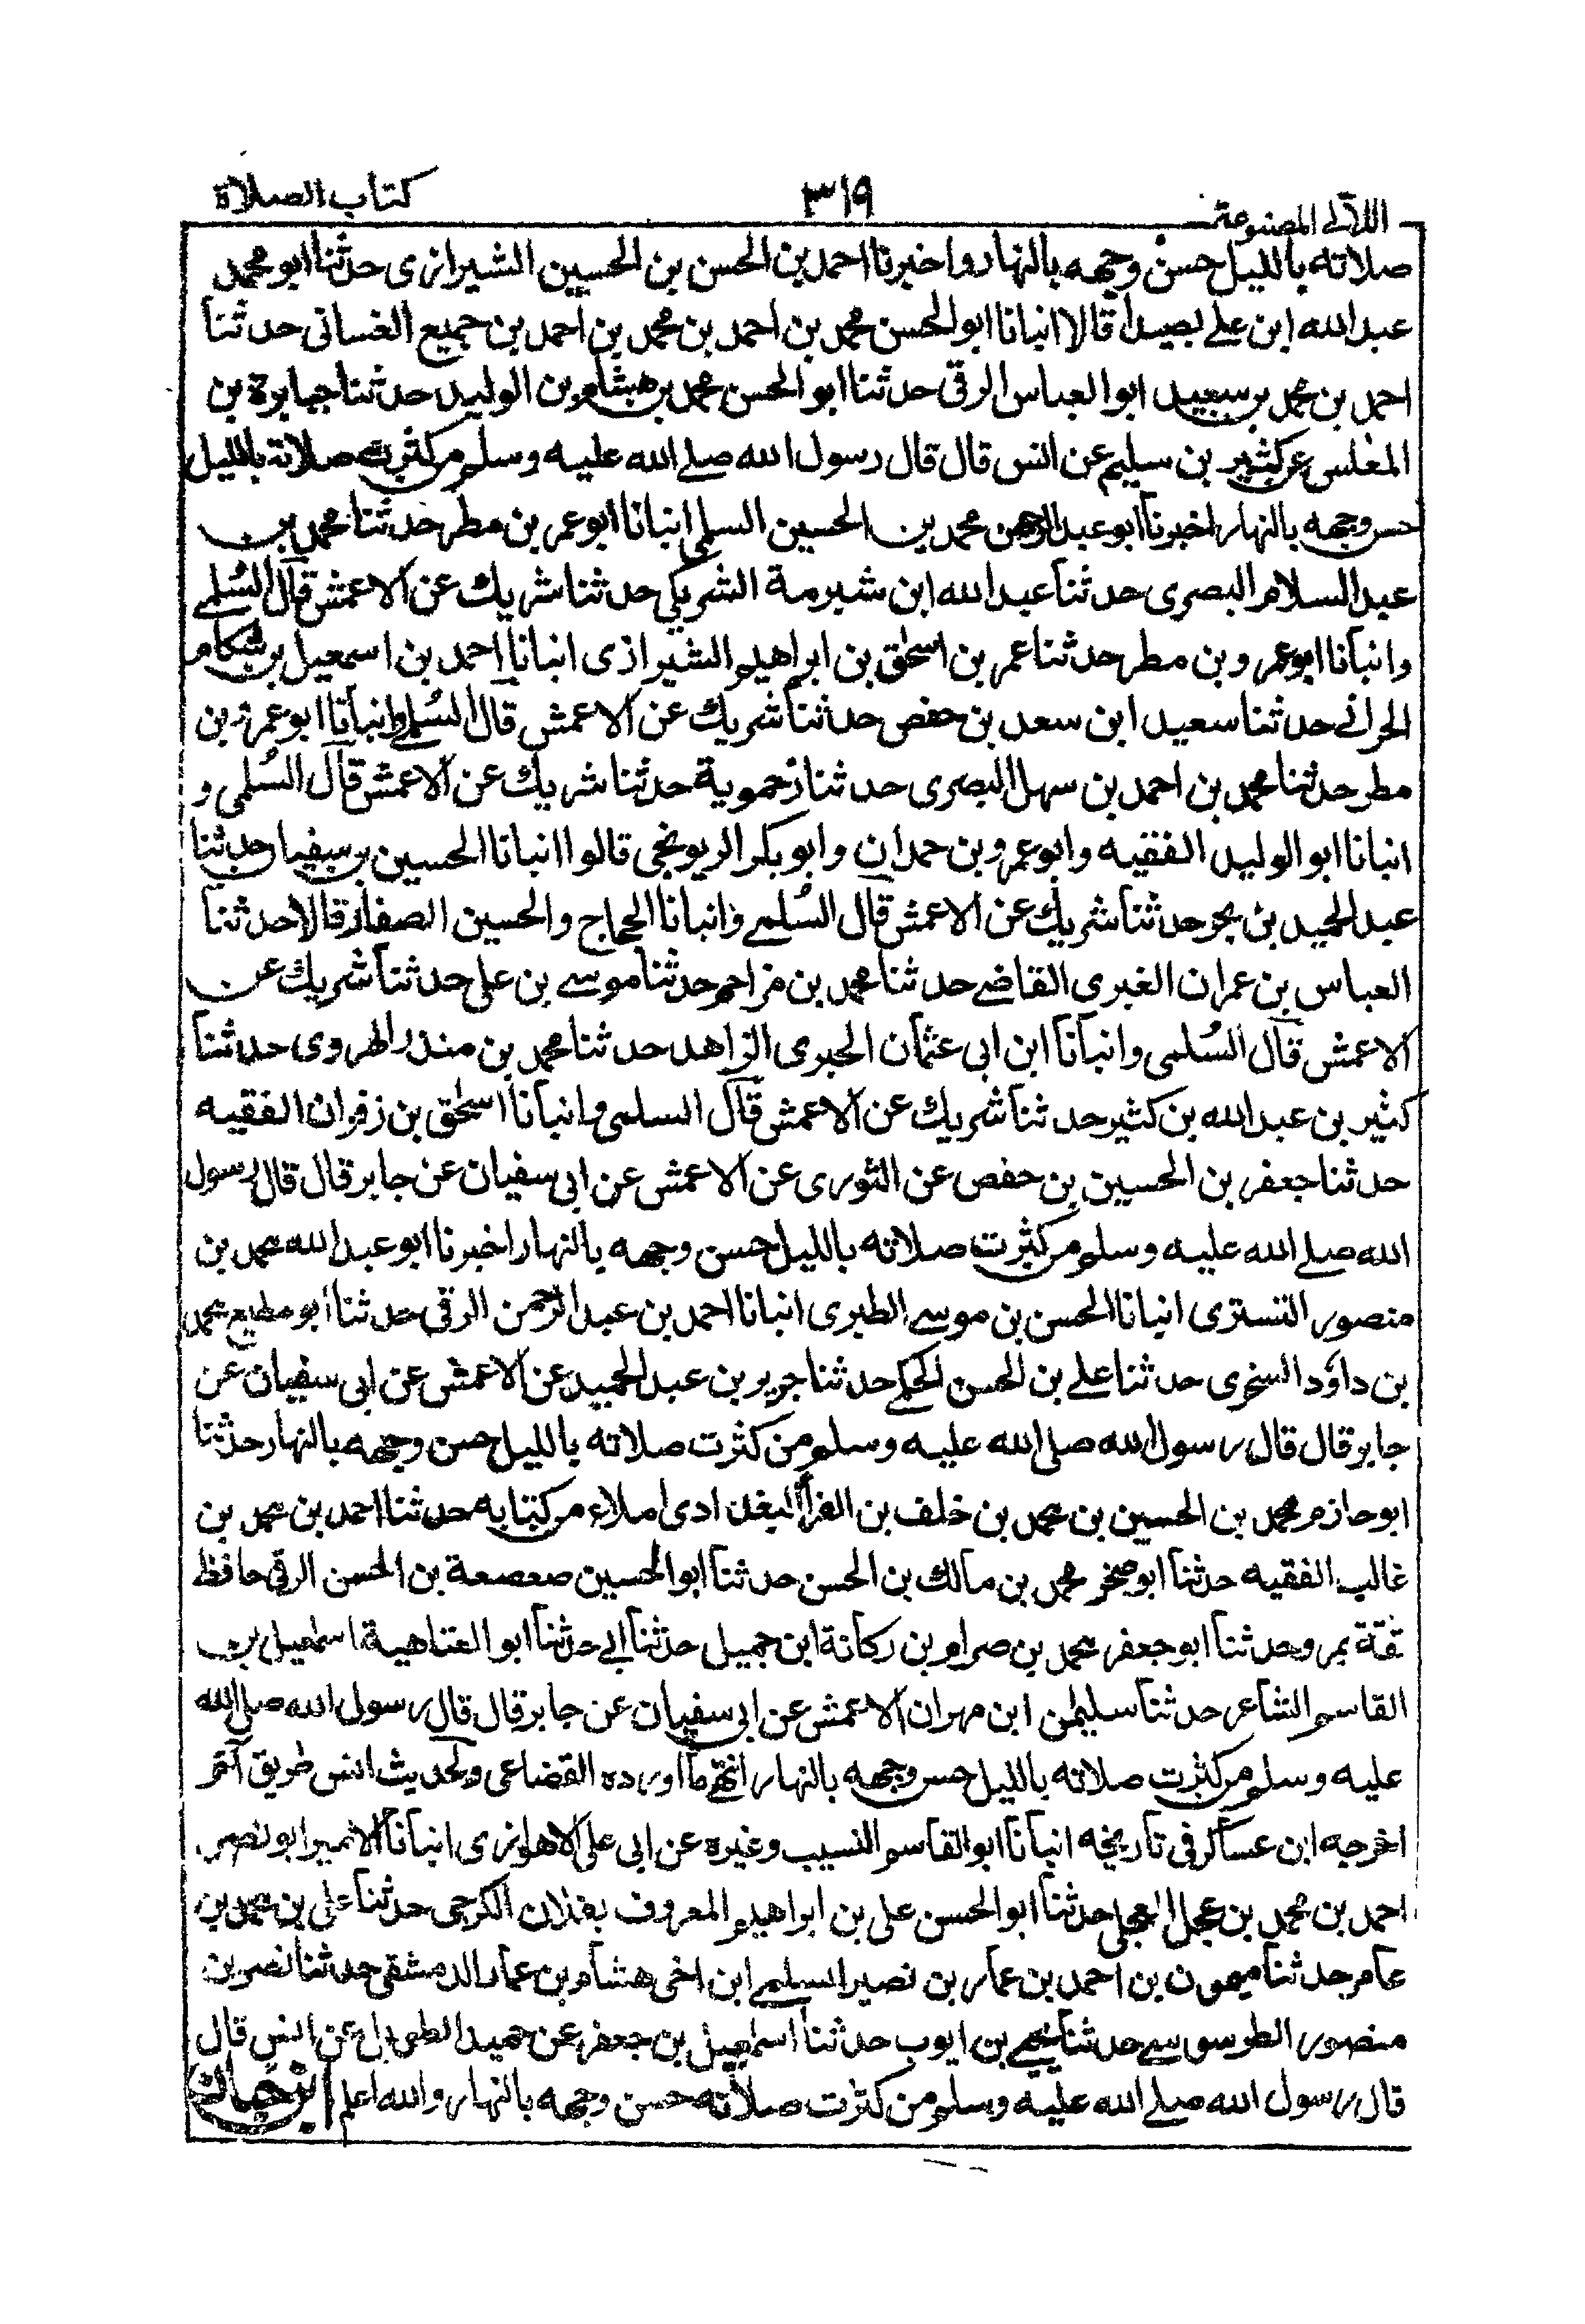 اللآلى المصنوعة ٣١٩ كتاب الصلاة
صلاته بالليل حسن وجهه بالنهار واخبرنا احمد بن الحسن بن الحسين الشيرازى حدثنا ابو محمد
عبد الله ابن على بصيدا قالا انبانا ابو الحسن محمد بن احمد بن محمد بن احمد بن جميع الغسانى حدثنا
احمد بن محمد بن سعيد ابو العباس الرقى حدثنا ابو الحسن محمد بن هشام بن الوليد حدثنا جبابرة بن
المغلس عن كثير بن سليم عن انس قال قال رسول الله صلى الله عليه وسلم من كثرت صلاته بالليل
حسن وجهه بالنهار اخبرنا ابو عبد الرحمن محمد بن الحسين السلمى انبانا ابو عمر بن مطر حدثنا محمد بن
عبد السلام البصرى حدثنا عبد الله ابن شبرمة الشريكى حدثنا شريك عن الاعمش قال السُلمى
وانبانا ابو عمرو بن مطر حدثنا عمر بن اسحٰق بن ابراهيم الشيرازى انبانا احمد بن اسمعيل بن شكام
الحرانى حدثنا سعيد ابن سعد بن حفص حدثنا شريك عن الاعمش قال السُلمى وانبانا ابو عمرو بن
مطر حدثنا محمد بن احمد بن سهل البصرى حدثنا زحموية حدثنا شريك عن الاعمش قال السُلمى و
انبانا ابو الوليد الفقيه وابو عمرو بن حمدان وابو بكر الريونجى قالوا انبانا الحسين بن سفيان حدثنا
عبد الحميد بن بحر حدثنا شريك عن الاعمش قال السُلمى وانبانا الحجاج والحسين الصفار قالا حدثنا
العباس بن عمران الغبرى القاضى حدثنا محمد بن مزاحم حدثنا موسى بن على حدثنا شريك عن
الاعمش قال السُلمى وانبانا ابن ابى عثمان الحيرى الزاهد حدثنا محمد بن منذر الهروى حدثنا
كثير بن عبد الله بن كثير حدثنا شريك عن الاعمش قال السلمى وانبانا اسحٰق بن زفران الفقيه
حدثنا جعفر بن الحسين بن حفص عن الثورى عن الاعمش عن ابى سفيان عن جابر قال قال رسول
الله صلى الله عليه وسلم من كثرت صلاته بالليل حسن وجهه بالنهار اخبرنا ابو عبد الله محمد بن
منصور التسترى انبانا الحسن بن موسى الطبرى انبانا احمد بن عبد الرحمن الرقى حدثنا ابو مطيع محمد
بن داؤد السخرى حدثنا على بن الحسن الحكم حدثنا جرير بن عبد الحميد عن الاعمش عن ابى سفيان عن
جابر قال قال رسول الله صلى الله عليه وسلم من كثرت صلاته بالليل حسن وجهه بالنهار حدثنا
ابو حازم محمد بن الحسين بن محمد بن خلف بن الفراء البغدادى املاء من كتابه حدثنا احمد بن محمد بن
غالب الفقيه حدثنا ابو صخر محمد بن مالك بن الحسن حدثنا ابو الحسين صعصعة بن الحسن الرقى حافظ
ثقة بمرو حدثنا ابو جعفر محمد بن صرام بن ركانة ابن جميل حدثنا ابى حدثنا ابو العتاهية اسمٰعيل بن
القاسم الشاعر حدثنا سليمٰن ابن مهران الاعمش عن ابى سفيان عن جابر قال قال رسول الله صلى الله
عليه وسلم من كثرت صلاته بالليل حسن وجهه بالنهار انتهى ما اورده القضاعى ولحديث انس طريق آخر
اخرجه ابن عساكر فى تاريخه انبانا ابو القاسم النسيب وغيره عن ابى على الاهوازى انبانا الامير ابو نصر
احمد بن محمد بن عجل العجلى حدثنا ابو الحسن على بن ابراهيم المعروف بغلان الكرجى حدثنا على بن محمد بن
عامر حدثنا ميمون بن احمد بن عمار بن نصير السلمى ابن اخى هشام بن عمار الدمشقى حدثنا نصر بن
منصور الطرسوسى حدثنا يحيى بن ايوب حدثنا اسمعيل بن جعفر عن حميد الطويل عن انس قال
قال رسول الله صلى الله عليه وسلم من كثرت صلاته حسن وجهه بالنهار والله اعلم ابن حبان